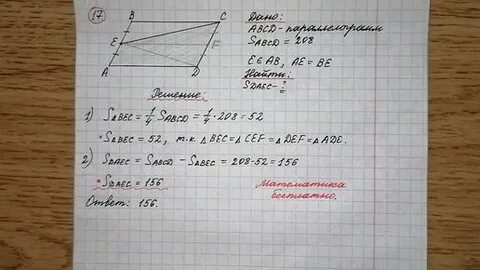 17
B C Дано:
ABCD - параллелограмм
SABCD = 208
E F
A D
E∈AB, AE = BE
Найти:
SDAEC - ?
Решение:
1) SΔBEC = 1/4 SABCD = 1/4 · 208 = 52
* SΔBEC = 52, т.к. ΔBEC = ΔCEF = ΔDEF = ΔADE.
2) SDAEC = SABCD - SΔBEC = 208 - 52 = 156
* SDAEC = 156
Ответ: 156.
Математика
бесплатно.